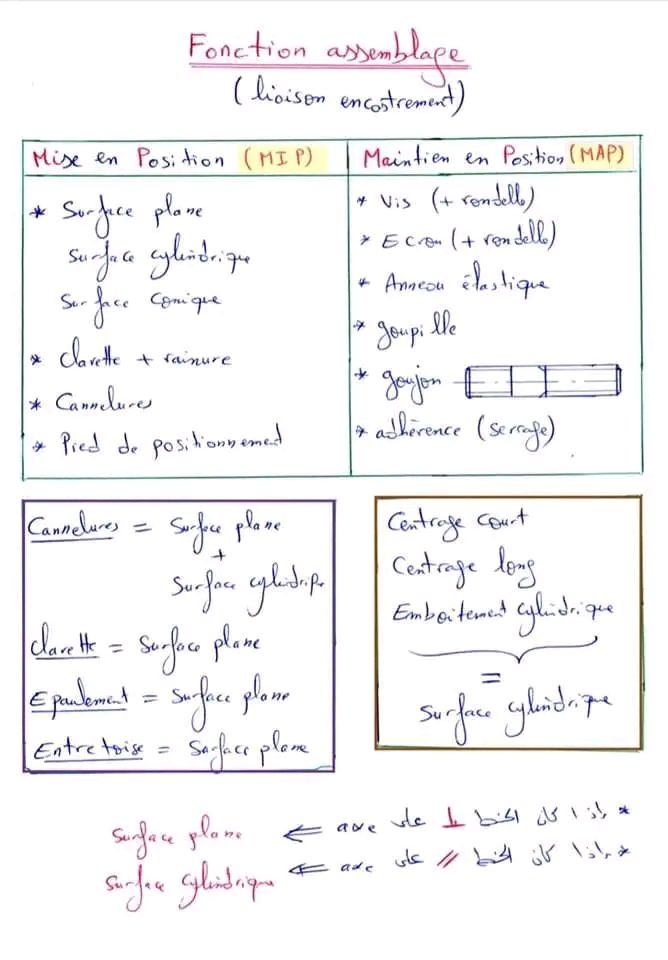 Fonction assemblage
(liaison encastrement)
Mise en Position (MIP)
* Surface plane
Surface cylindrique
Surface conique
* Clavette + rainure
* Cannelures
* Pied de positionnement
Maintien en Position (MAP)
* Vis (+ rondelle)
* Ecrou (+ rondelle)
* Anneau élastique
* goupille
* goujon
* adhérence (serrage)
Cannelures = Surface plane
+
Surface cylindrique
Clavette = Surface plane
Epaulement = Surface plane
Entretoise = Surface plane
Centrage court
Centrage long
Emboitement cylindrique
=
Surface cylindrique
* إذا كان الخط ⊥ على axe ⇐ Surface plane
* إذا كان الخط // على axe ⇐ Surface cylindrique